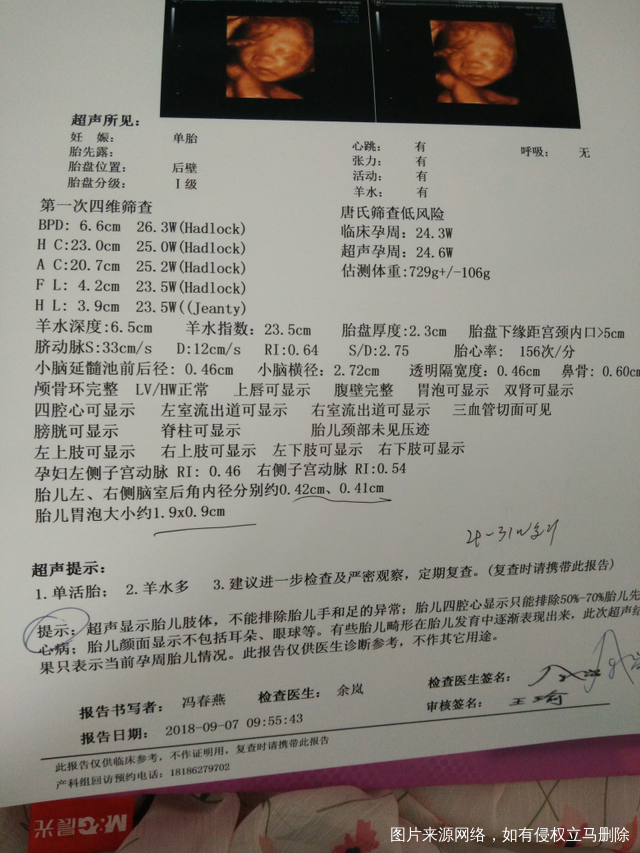 超声所见：
妊 娠： 单胎 心跳： 有 呼吸： 无
胎先露： 张力： 有
胎盘位置： 后壁 活动： 有
胎盘分级： Ⅰ级 羊水： 有
第一次四维筛查 唐氏筛查低风险
BPD: 6.6cm 26.3W(Hadlock) 临床孕周：24.3W
H C:23.0cm 25.0W(Hadlock) 超声孕周：24.6W
A C:20.7cm 25.2W(Hadlock) 估测体重:729g+/-106g
F L: 4.2cm 23.5W(Hadlock)
H L: 3.9cm 23.5W((Jeanty)
羊水深度:6.5cm 羊水指数：23.5cm 胎盘厚度:2.3cm 胎盘下缘距宫颈内口>5cm
脐动脉S:33cm/s D:12cm/s RI:0.64 S/D:2.75 胎心率: 156次/分
小脑延髓池前后径: 0.46cm 小脑横径：2.72cm 透明隔宽度：0.46cm 鼻骨: 0.60cm
颅骨环完整 LV/HW正常 上唇可显示 腹壁完整 胃泡可显示 双肾可显示
四腔心可显示 左室流出道可显示 右室流出道可显示 三血管切面可见
膀胱可显示 脊柱可显示 胎儿颈部未见压迹
左上肢可显示 右上肢可显示 左下肢可显示 右下肢可显示
孕妇左侧子宫动脉 RI: 0.46 右侧子宫动脉 RI:0.54
胎儿左、右侧脑室后角内径分别约0.42cm、0.41cm
胎儿胃泡大小约1.9x0.9cm
超声提示：
1.单活胎； 2.羊水多 3.建议进一步检查及严密观察，定期复查。(复查时请携带此报告)
提示：超声显示胎儿肢体，不能排除胎儿手和足的异常；胎儿四腔心显示只能排除50%-70%胎儿先
心病；胎儿颜面显示不包括耳朵、眼球等。有些胎儿畸形在胎儿发育中逐渐表现出来，此次超声结
果只表示当前孕周胎儿情况。此报告仅供医生诊断参考，不作其它用途。
报告书写者： 冯春燕 检查医生： 余岚 检查医生签名：
报告日期： 2018-09-07 09:55:43 审核签名：
此报告仅供临床参考，不作证明用，复查时请携带此报告
产科组回访预约电话：18186279702
M&G晨光
图片来源网络，如有侵权立马删除